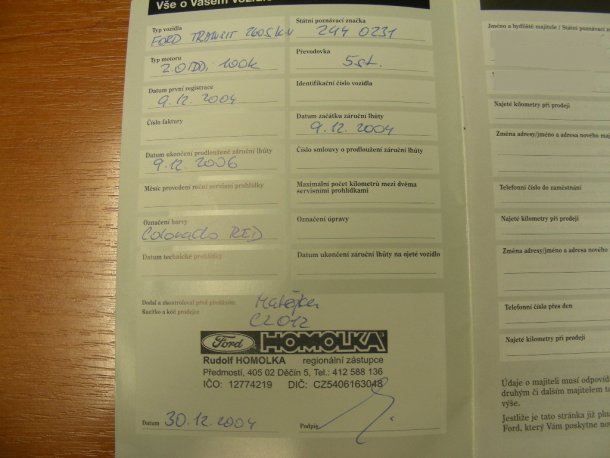 Vše o Vašem vozidle
Typ vozidla
FORD TRANSIT 260S KV
Státní poznávací značka
2U4 0231
Typ motoru
2.0 DDi 100k
Převodovka
5st.
Datum první registrace
9.12.2004
Identifikační číslo vozidla
Číslo faktury
Datum začátku záruční lhůty
9.12.2004
Datum ukončení prodloužené záruční lhůty
9.12.2006
Číslo smlouvy o prodloužení záruční lhůty
Měsíc provedení roční servisní prohlídky
Maximální počet kilometrů mezi dvěma
servisními prohlídkami
Označení barvy
Colorado RED
Označení úpravy
Datum technické prohlídky
Datum ukončení záruční lhůty na ojeté vozidlo
Dodal a zkontroloval před předáním
Razítko a kód prodejce
CZ012
Ford HOMOLKA
Rudolf HOMOLKA regionální zástupce
Předmostí, 405 02 Děčín 5, Tel.: 412 588 136
IČO: 12774219 DIČ: CZ5406163048
Datum 30.12.2004
Podpis
Jméno a bydliště majitele / Státní poznávací
Najeté kilometry při prodeji
Změna adresy/jméno a adresa nového
Telefonní číslo do zaměstnání
Najeté kilometry při prodeji
Změna adresy/jméno a adresa nového
Telefonní číslo přes den
Najeté kilometry při prodeji
Údaje o majiteli musí odpovíd
druhým či dalším majitelem
výše.
Jestliže je tato stránka již
Ford, který Vám poskytne